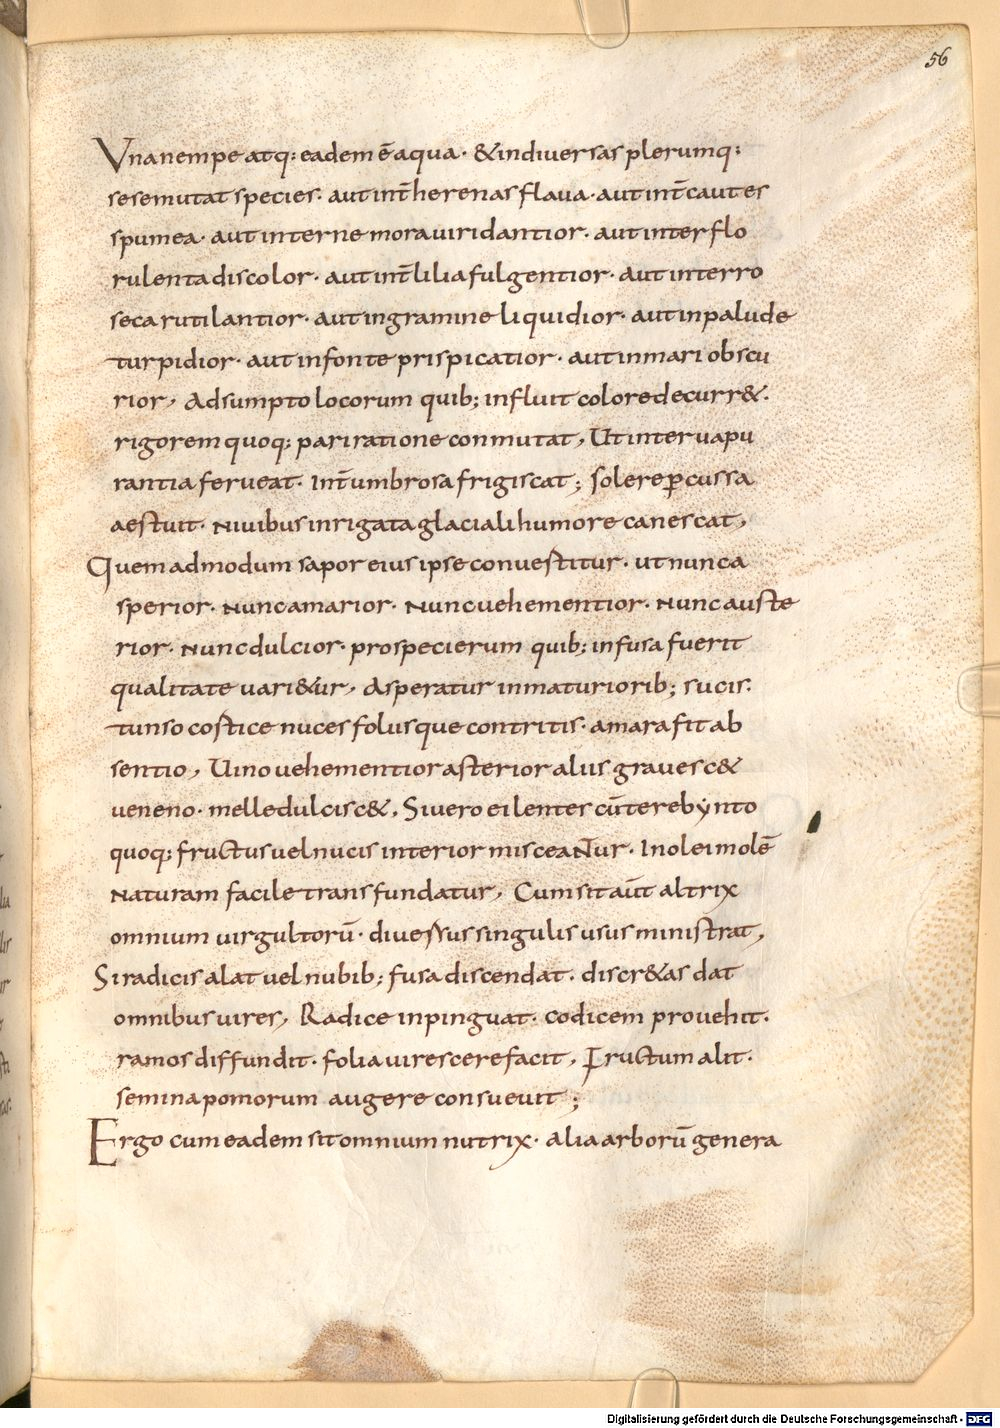 56
Vna nempe atq: eadem ē aqua· & indiuersas plerumq:
sese mutat species· aut int̄ herenas flaua· aut int̄ cautes
spumea· aut interne mora uiridantior· aut inter flo
rulenta discolor· aut int̄ lilia fulgentior· aut inter ro
seca rutilantior· aut ingramine liquidior· aut inpalude
turpidior· aut infonte prispicatior· aut inmari obscu
rior, Adsumpto locorum quib; influit colore decurr&.
rigorem quoq: pari ratione conmutat, Ut inter uapu
rantia ferueat· Int̄ umbrosa frigiscat; sole reꝑcussa
aestuit· niuibus inrigata glaciali humore canescat,
Quem ad modum sapor eius ipse conuestitur· ut nunc a
sperior· nunc amarior· nunc uehementior· nunc auste
rior· nunc dulcior· pro specierum quib; infusa fuerit
qualitate uari&ur, Asperatur inmaturiorib; sucis·
tunso costice nuces foliisque contritis· amara fit ab
sentio, Uino uehementior asterior aliis grauesc&
ueneno· melle dulcisc&, Si uero ei lenter cū terebynto
quoq: fructus uel nucis interior misceatur· In olei molē
naturam facile transfundatur, Cum sit aūt altrix
omnium uirgultorū· diuessus singulis usus ministrat,
Si radicis alat uel nubib; fusa discendat· discr&as dat
omnibus uires, Radice inpinguat· codicem prouehit·
ramos diffundit· folia uirescere facit, Fructum alit·
semina pomorum augere consueuit;
Ergo cum eadem sit omnium nutrix· alia arborū genera
Digitalisierung gefördert durch die Deutsche Forschungsgemeinschaft - DFG